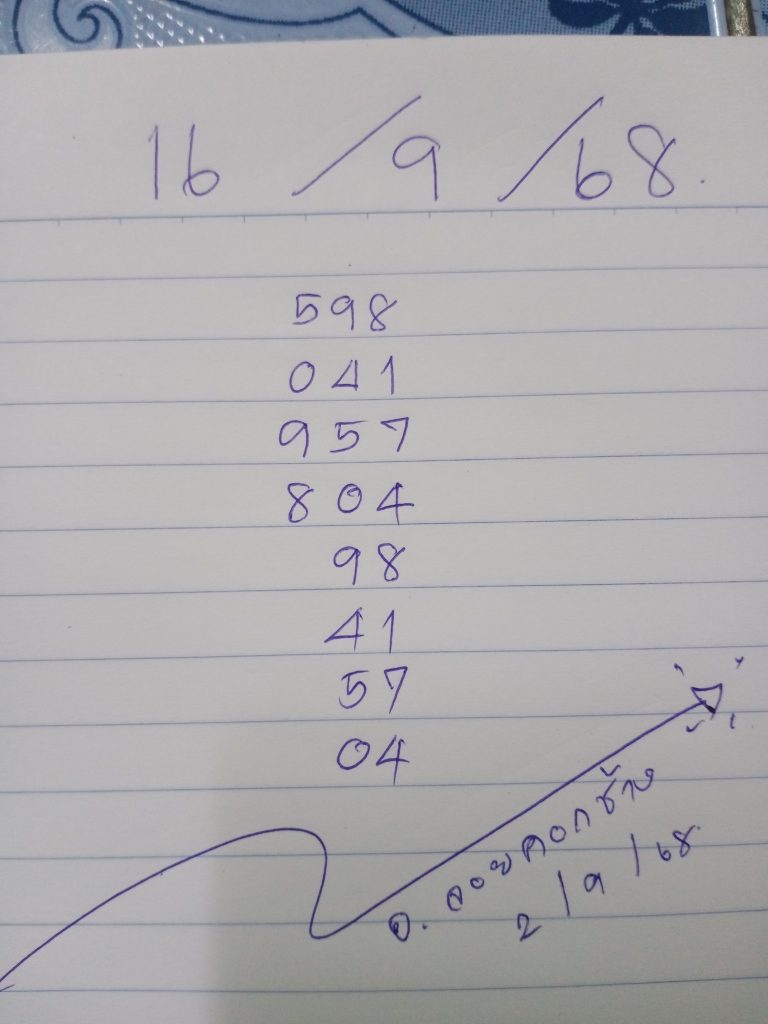 16/9/68.
598
041
957
804
98
41
57
04
อ. ลอย คอกช้าง
2/9/68